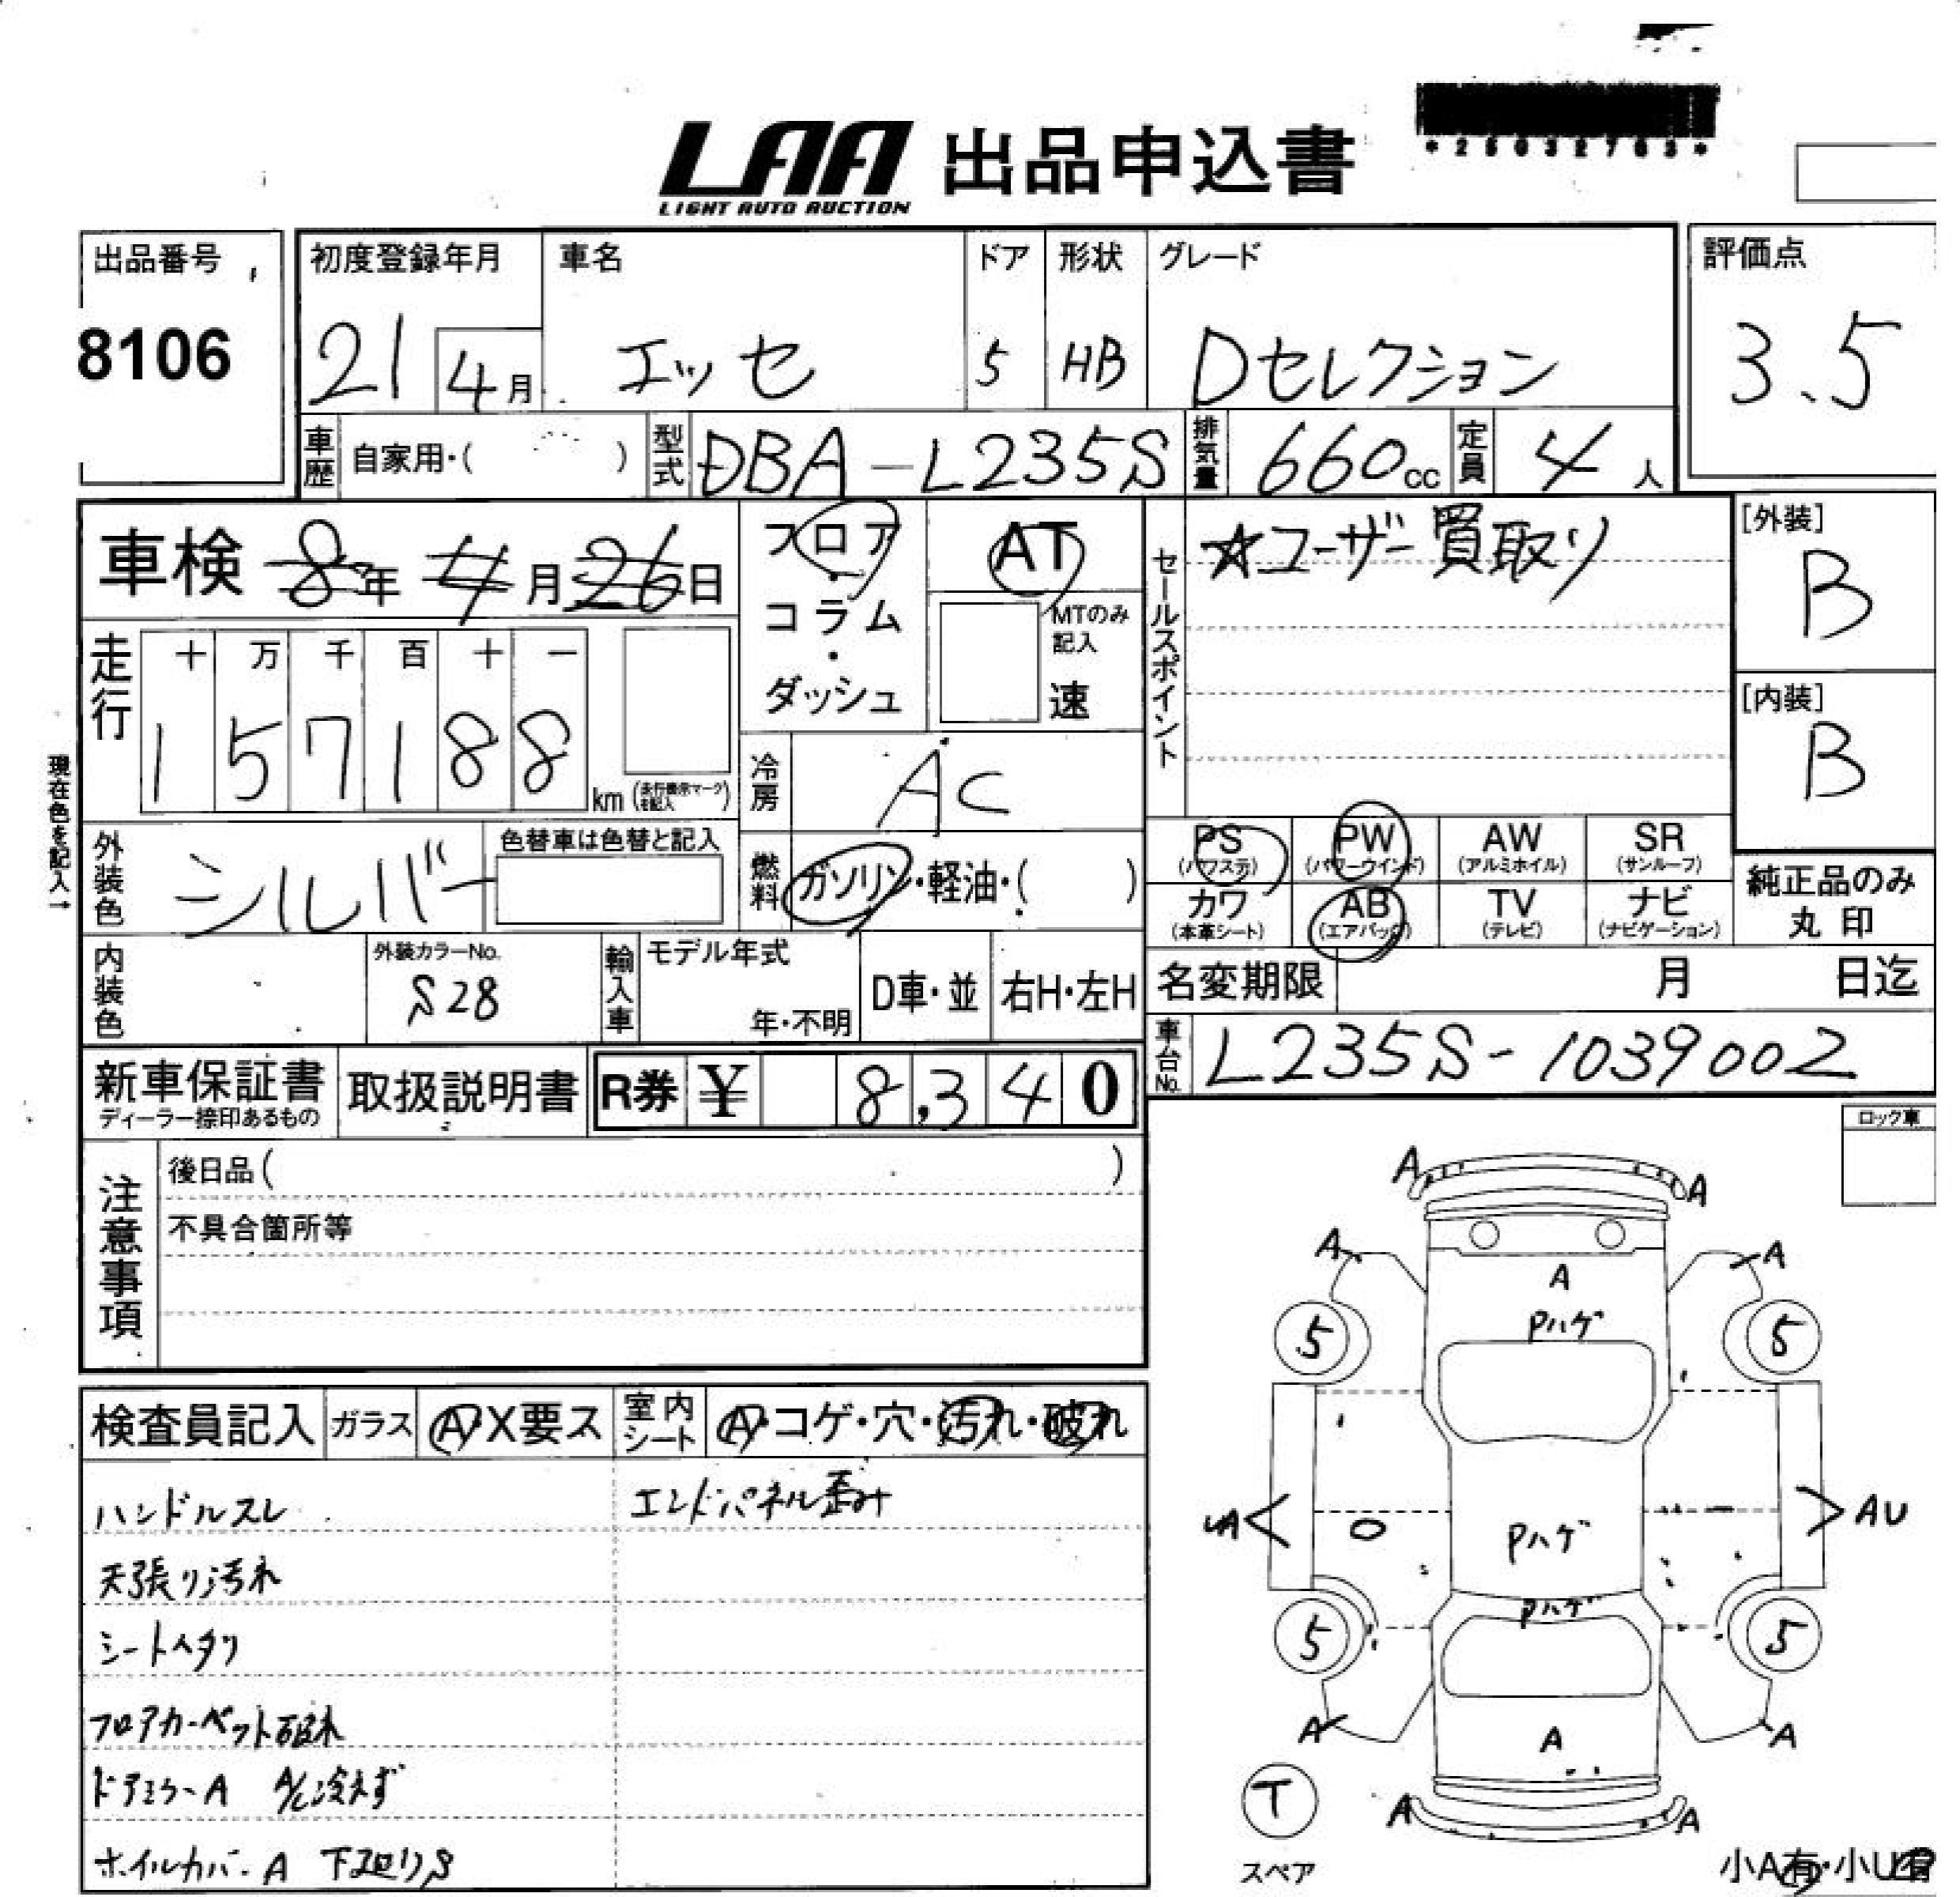 LAA 出品申込書
LIGHT AUTO AUCTION
*25032703*
出品番号
8106
初度登録年月 車名 ドア 形状 グレード 評価点
21 4月 エッセ 5 HB Dセレクション 3.5
車歴 自家用・( ) 型式 DBA-L235S 排気量 660cc 定員 4人
車検 8年 4月 26日
フロア・コラム・ダッシュ
AT
MTのみ記入
速
セールスポイント
☆ユーザー買取り
[外装]
B
[内装]
B
走行 十 万 千 百 十 一
1 5 7 1 8 8 km (走行表示マークを記入)
現在色を記入→
冷房 AC
外装色 シルバー 色替車は色替と記入
燃料 ガソリン・軽油・( )
PS (パワステ) PW (パワーウインド) AW (アルミホイル) SR (サンルーフ)
カワ (本革シート) AB (エアバック) TV (テレビ) ナビ (ナビゲーション)
純正品のみ丸印
内装色 外装カラーNo. S28
輸入車 モデル年式 年・不明 D車・並 右H・左H
名変期限 月 日迄
車台No. L235S-1039002
新車保証書 ディーラー捺印あるもの
取扱説明書
R券 ¥ 8,340
ロック車
注意事項
後日品( )
不具合箇所等
検査員記入 ガラス A・X要ス 室内シート A・コゲ・穴・汚れ・破れ
ハンドルスレ エンドパネル歪み
天張り汚れ
シートヘタリ
フロアカーペット破れ
ドアミラーA A/C冷えず
ホイルカバーA 下廻りS
A A
A A
A
Pハゲ
5 5
A AU
Pハゲ
Pハゲ
5 5
A A
A
T
スペア
A A
小A有・小U有